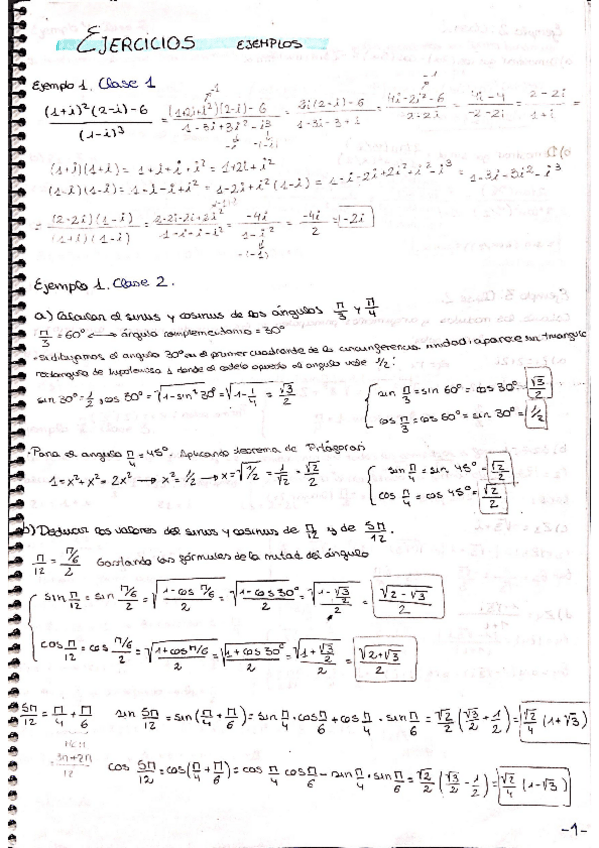 EJERCICIOS EJEMPLOS
Ejemplo 1. Clase 1
(1+i)²(2-i)-6 / (1-i)³ = (1+2i+i²)(2-i)-6 / 1-3i+3i²-i³ = 2i(2-i)-6 / 1-3i-3+i = 4i-2i²-6 / -2-2i = 4i-4 / -2-2i = 2-2i / 1+i =
(1+i)(1+i) = 1+i+i+i² = 1+2i+i²
(1-i)(1-i) = 1-i-i+i² = 1-2i+i²(1-i) = 1-i-2i+2i²+i²-i³ = 1-3i-3i²-i³
= (2-2i)(1-i) / (1+i)(1-i) = 2-2i-2i+2i² / 1-i+i-i² = -4i / 1-i² = -4i / 2 = -2i
Ejemplo 1. Clase 2.
a) Calcular el sinus y cosinus de los ángulos π/3 y π/4
π/3 = 60° ⟷ ángulo complementario = 30°
· Si dibujamos el angulo 30° en el primer cuadrante de la circunferencia unidad, aparece un triangulo
rectangulo de hipotenusa 1 donde el cateto opuesto al angulo vale 1/2:
sin 30° = 1/2, cos 30° = √(1-sin² 30°) = √(1-1/4) = √3/2 { sin π/3 = sin 60° = cos 30° = √3/2
cos π/3 = cos 60° = sin 30° = 1/2
· Para el angulo π/4 = 45°. Aplicando teorema de Pitágoras
1 = x² + x² = 2x² → x² = 1/2 → x = √(1/2) = 1/√2 = √2/2 { sin π/4 = sin 45° = √2/2
cos π/4 = cos 45° = √2/2
b) Deducir los valores del sinus y cosinus de π/12 y de 5π/12.
π/12 = π/6 / 2 las fórmules de la mitad del ángulo
{ sin π/12 = sin π/6 / 2 = √(1-cos π/6 / 2) = √(1-cos 30° / 2) = √(1-√3/2 / 2) = √(2-√3) / 2
cos π/12 = cos π/6 / 2 = √(1+cos π/6 / 2) = √(1+cos 30° / 2) = √(1+√3/2 / 2) = √(2+√3) / 2
5π/12 = π/4 + π/6 sin 5π/12 = sin(π/4 + π/6) = sin π/4 · cos π/6 + cos π/4 · sin π/6 = √2/2 (√3/2 + 1/2) = √2/4 (1+√3)
3π+2π / 12
cos 5π/12 = cos(π/4 + π/6) = cos π/4 cos π/6 - sin π/4 · sin π/6 = √2/2 (√3/2 - 1/2) = √2/4 (1-√3)
-1-